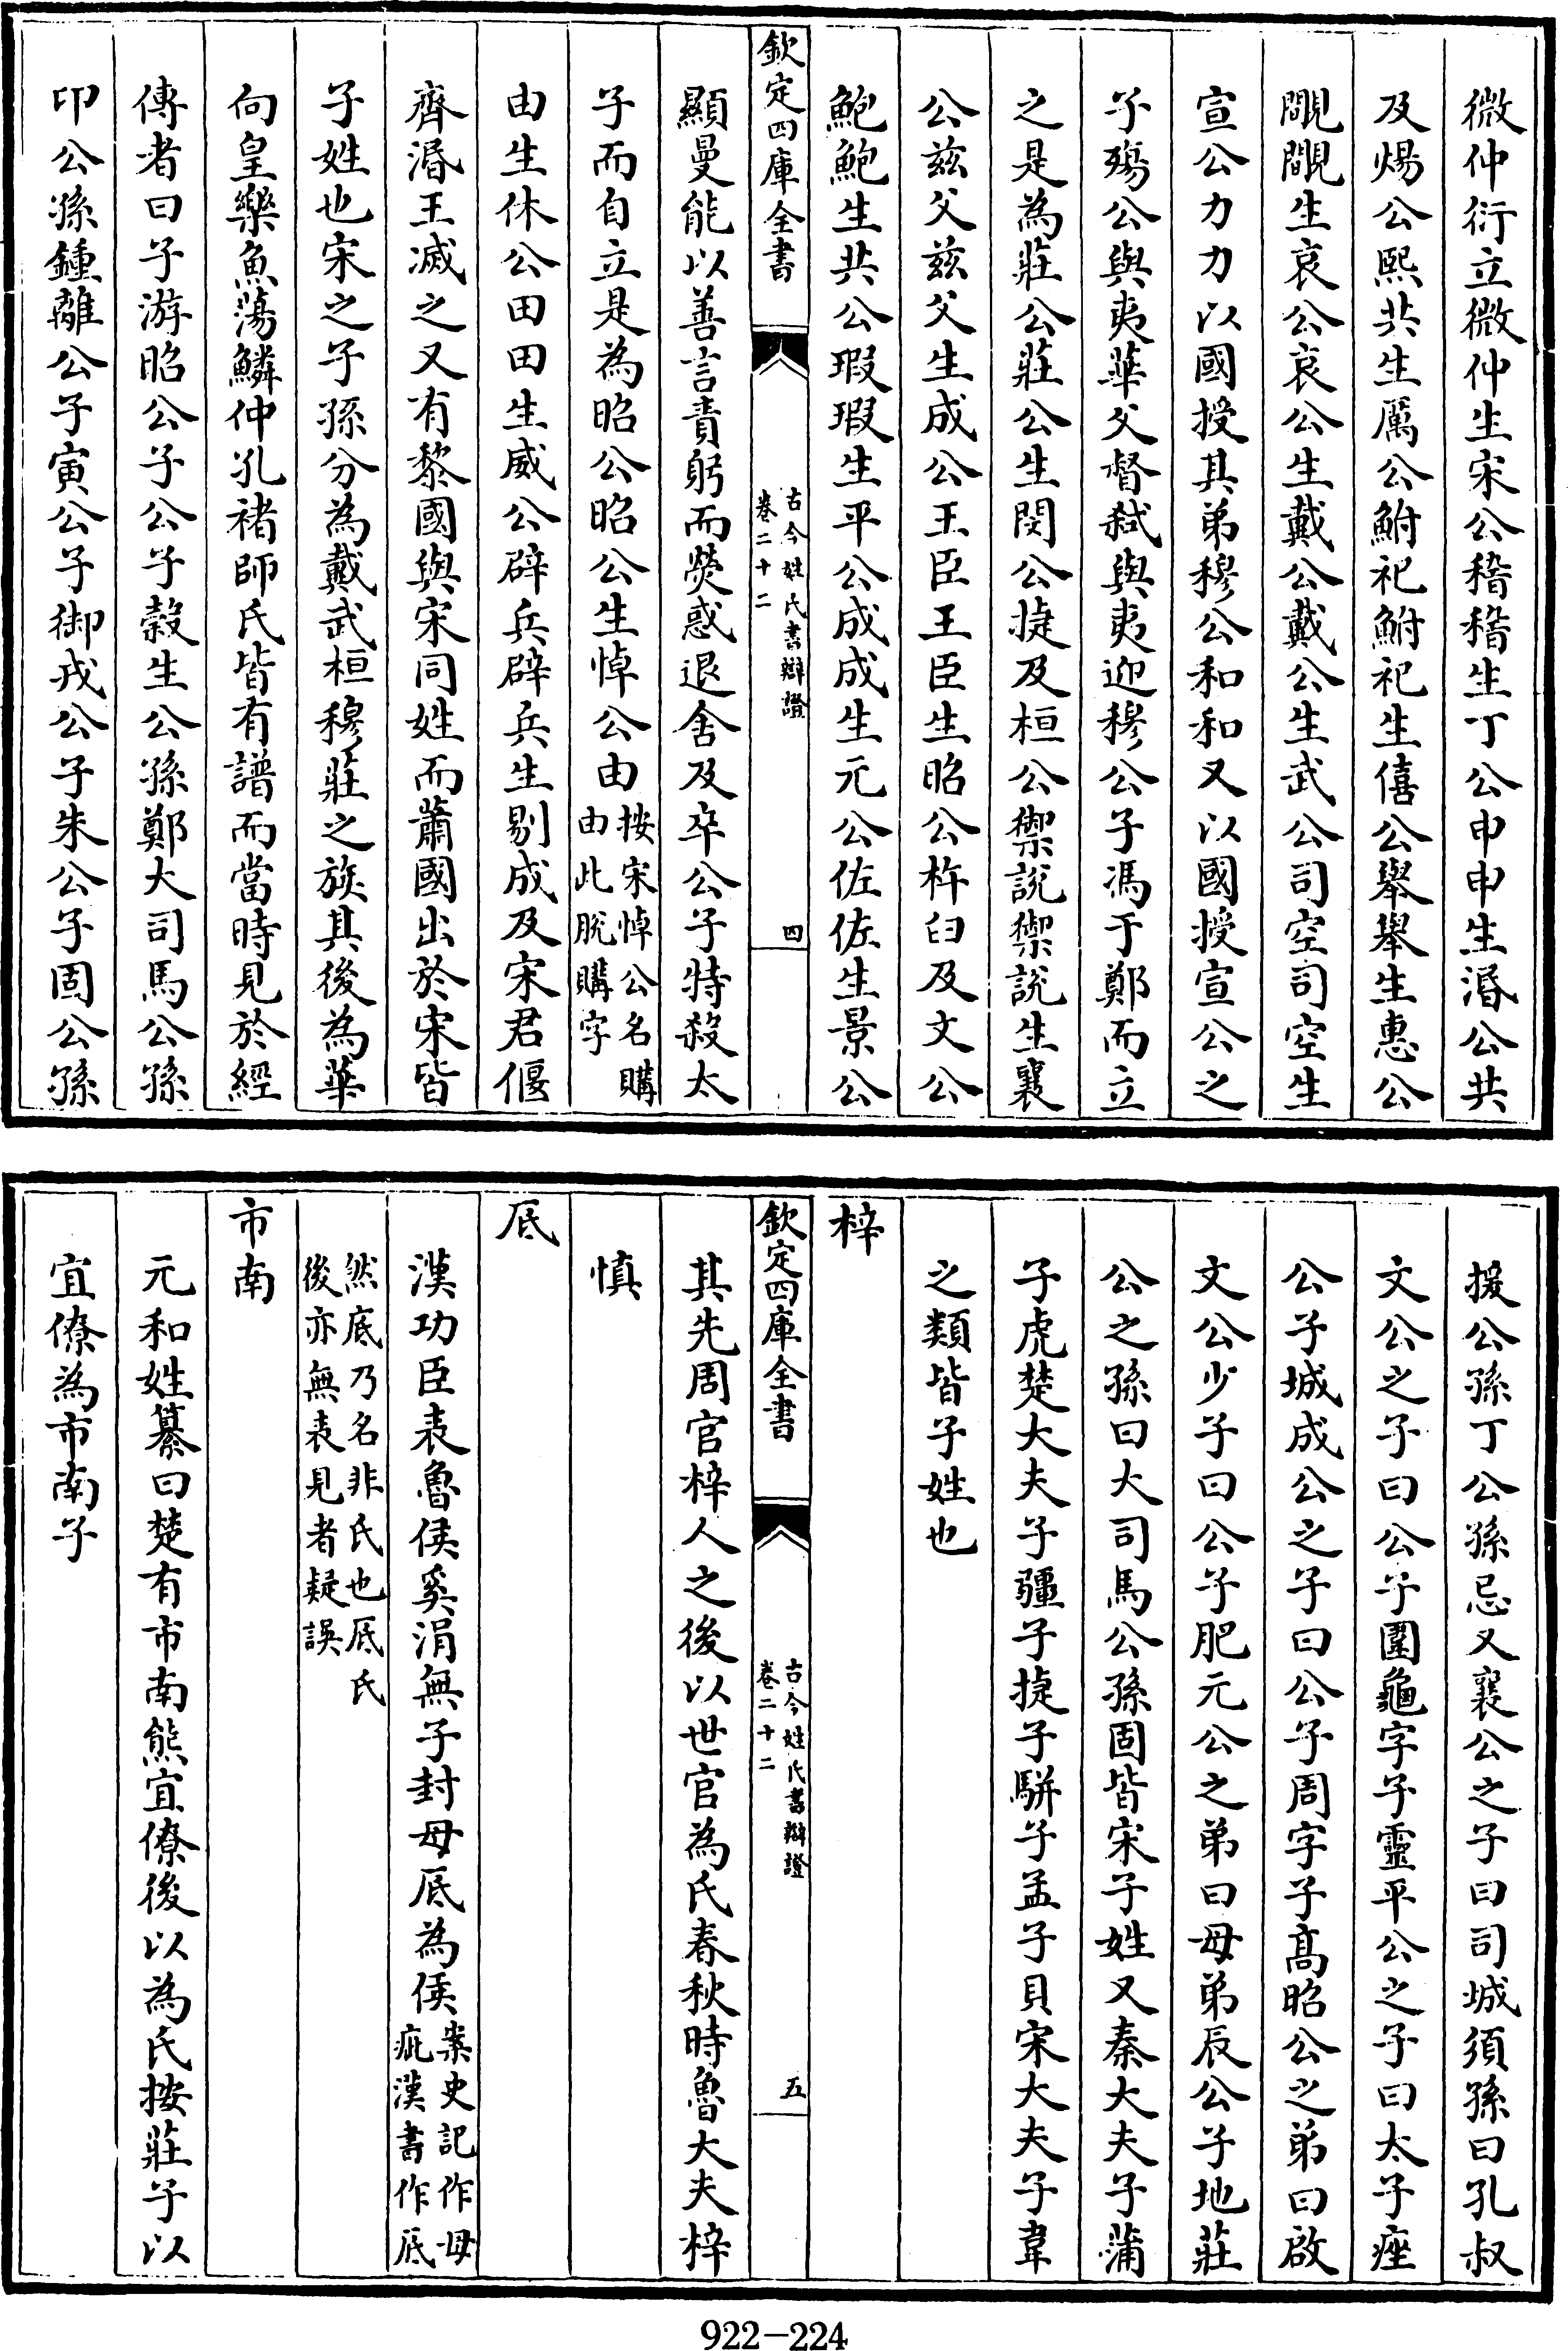 微仲衍立微仲生宋公稽稽生丁公申申生湣公共
及煬公熙共生厲公鮒祀鮒祀生僖公舉舉生惠公
覵覵生哀公哀公生戴公戴公生武公司空司空生
宣公力力以國授其弟穆公和和又以國授宣公之
子殤公與夷華父督弑與夷迎穆公子馮于鄭而立
之是為莊公莊公生閔公捷及桓公禦說禦說生襄
公兹父兹父生成公王臣王臣生昭公杵臼及文公
鮑鮑生共公瑕瑕生平公成成生元公佐佐生景公
欽定四庫全書
古今姓氏書辯證
卷二十二
四
顯曼能以善言責躬而熒惑退舍及卒公子特殺太
子而自立是為昭公昭公生悼公由按宋悼公名購
由此脫購字
由生休公田田生威公辟兵辟兵生剔成及宋君偃
齊湣王滅之又有黎國與宋同姓而蕭國出於宋皆
子姓也宋之子孫分為戴武桓穆莊之族其後為華
向皇樂魚蕩鱗仲孔褚師氏皆有譜而當時見於經
傳者曰子游昭公子公子榖生公孫鄭大司馬公孫
印公孫鍾離公子寅公子御戎公子朱公子固公孫
援公孫丁公孫忌又襄公之子曰司城須孫曰孔叔
文公之子曰公子圍龜字子靈平公之子曰太子痤
公子城成公之子曰公子周字子高昭公之弟曰啟
文公少子曰公子肥元公之弟曰母弟辰公子地莊
公之孫曰大司馬公孫固皆宋子姓又秦大夫子蒲
子虎楚大夫子疆子捷子駢子孟子貝宋大夫子韋
之類皆子姓也
梓
欽定四庫全書
古今姓氏書辯證
卷二十二
五
其先周官梓人之後以世官為氏春秋時魯大夫梓
慎
底
漢功臣表魯侯奚涓無子封母底為侯案史記作母
疵漢書作底
然底乃名非氏也底氏
後亦無表見者疑誤
市南
元和姓纂曰楚有市南熊宜僚後以為氏按莊子以
宜僚為市南子
922-224